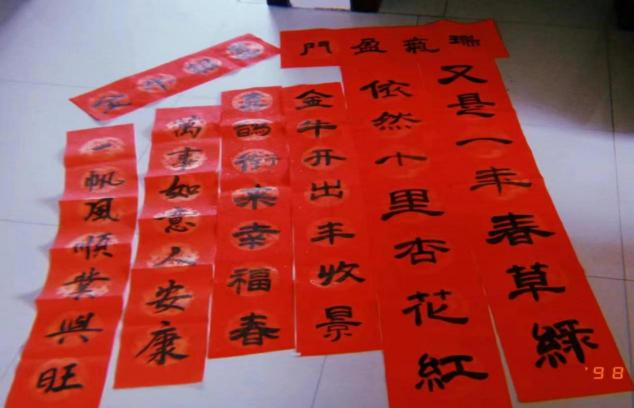 瑞氣盈門
又是一年春草綠
依然十里杏花紅
金牛开出丰收景
喜鵲銜来幸福春
萬事如意人安康
一帆風順業興旺
'98